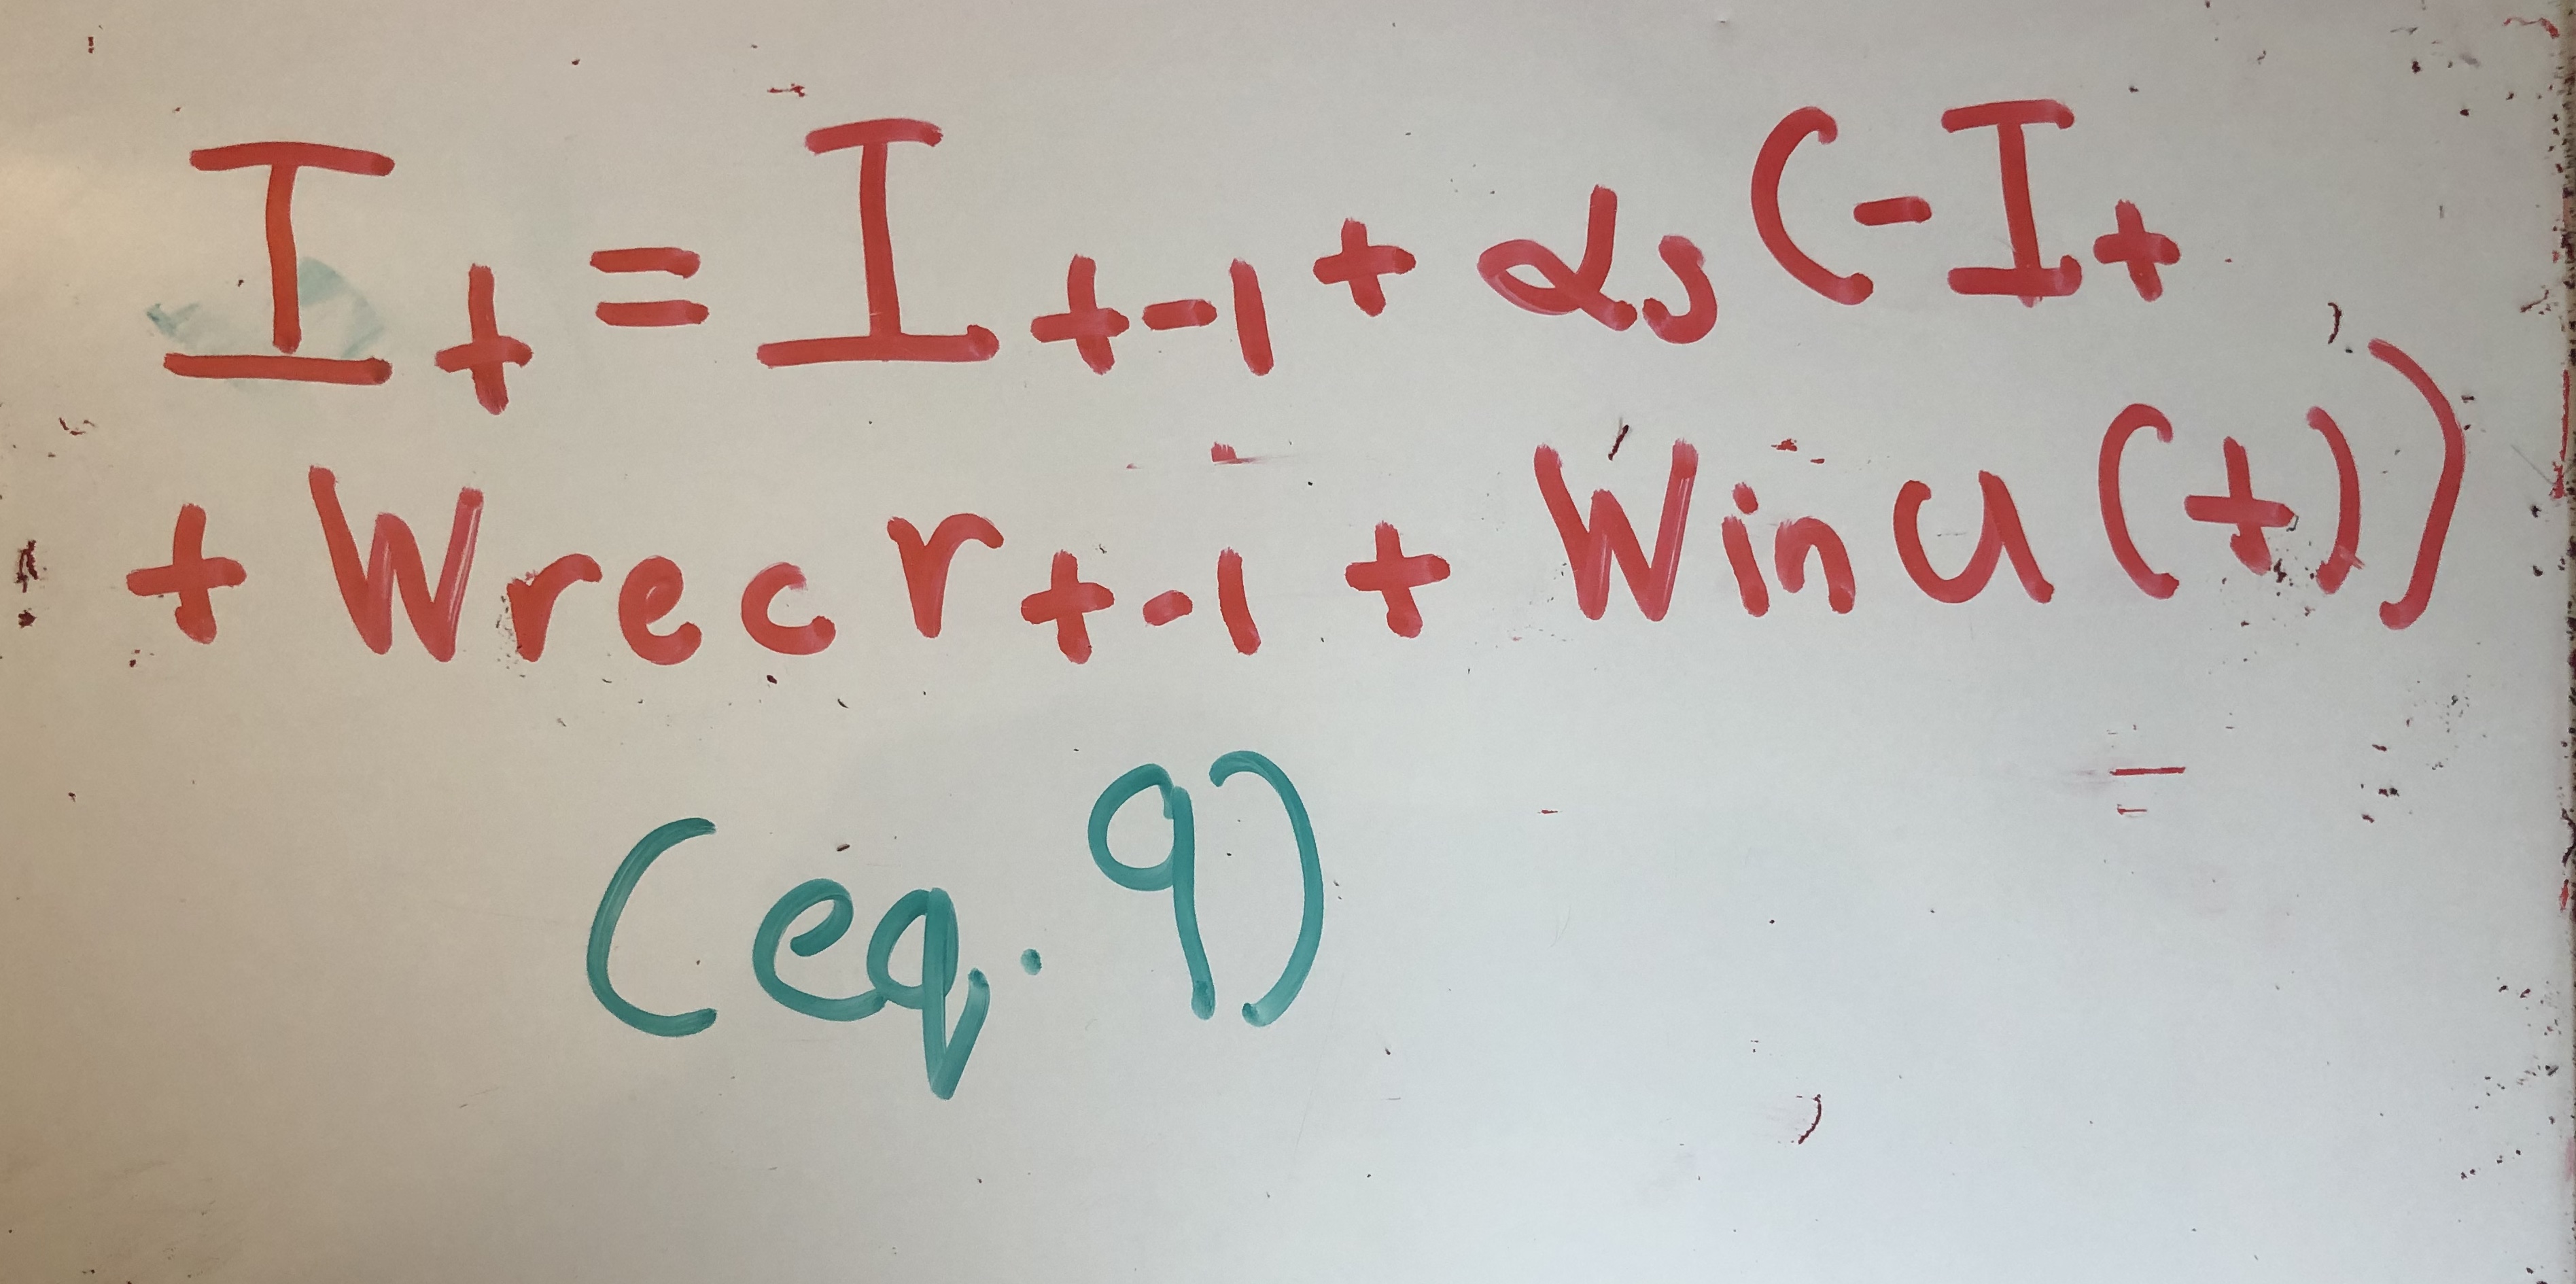 I_t = I_{t-1} + α_s (-I_t
+ W_{rec} r_{t-1} + W_{in} u(t))
(eq. 9)